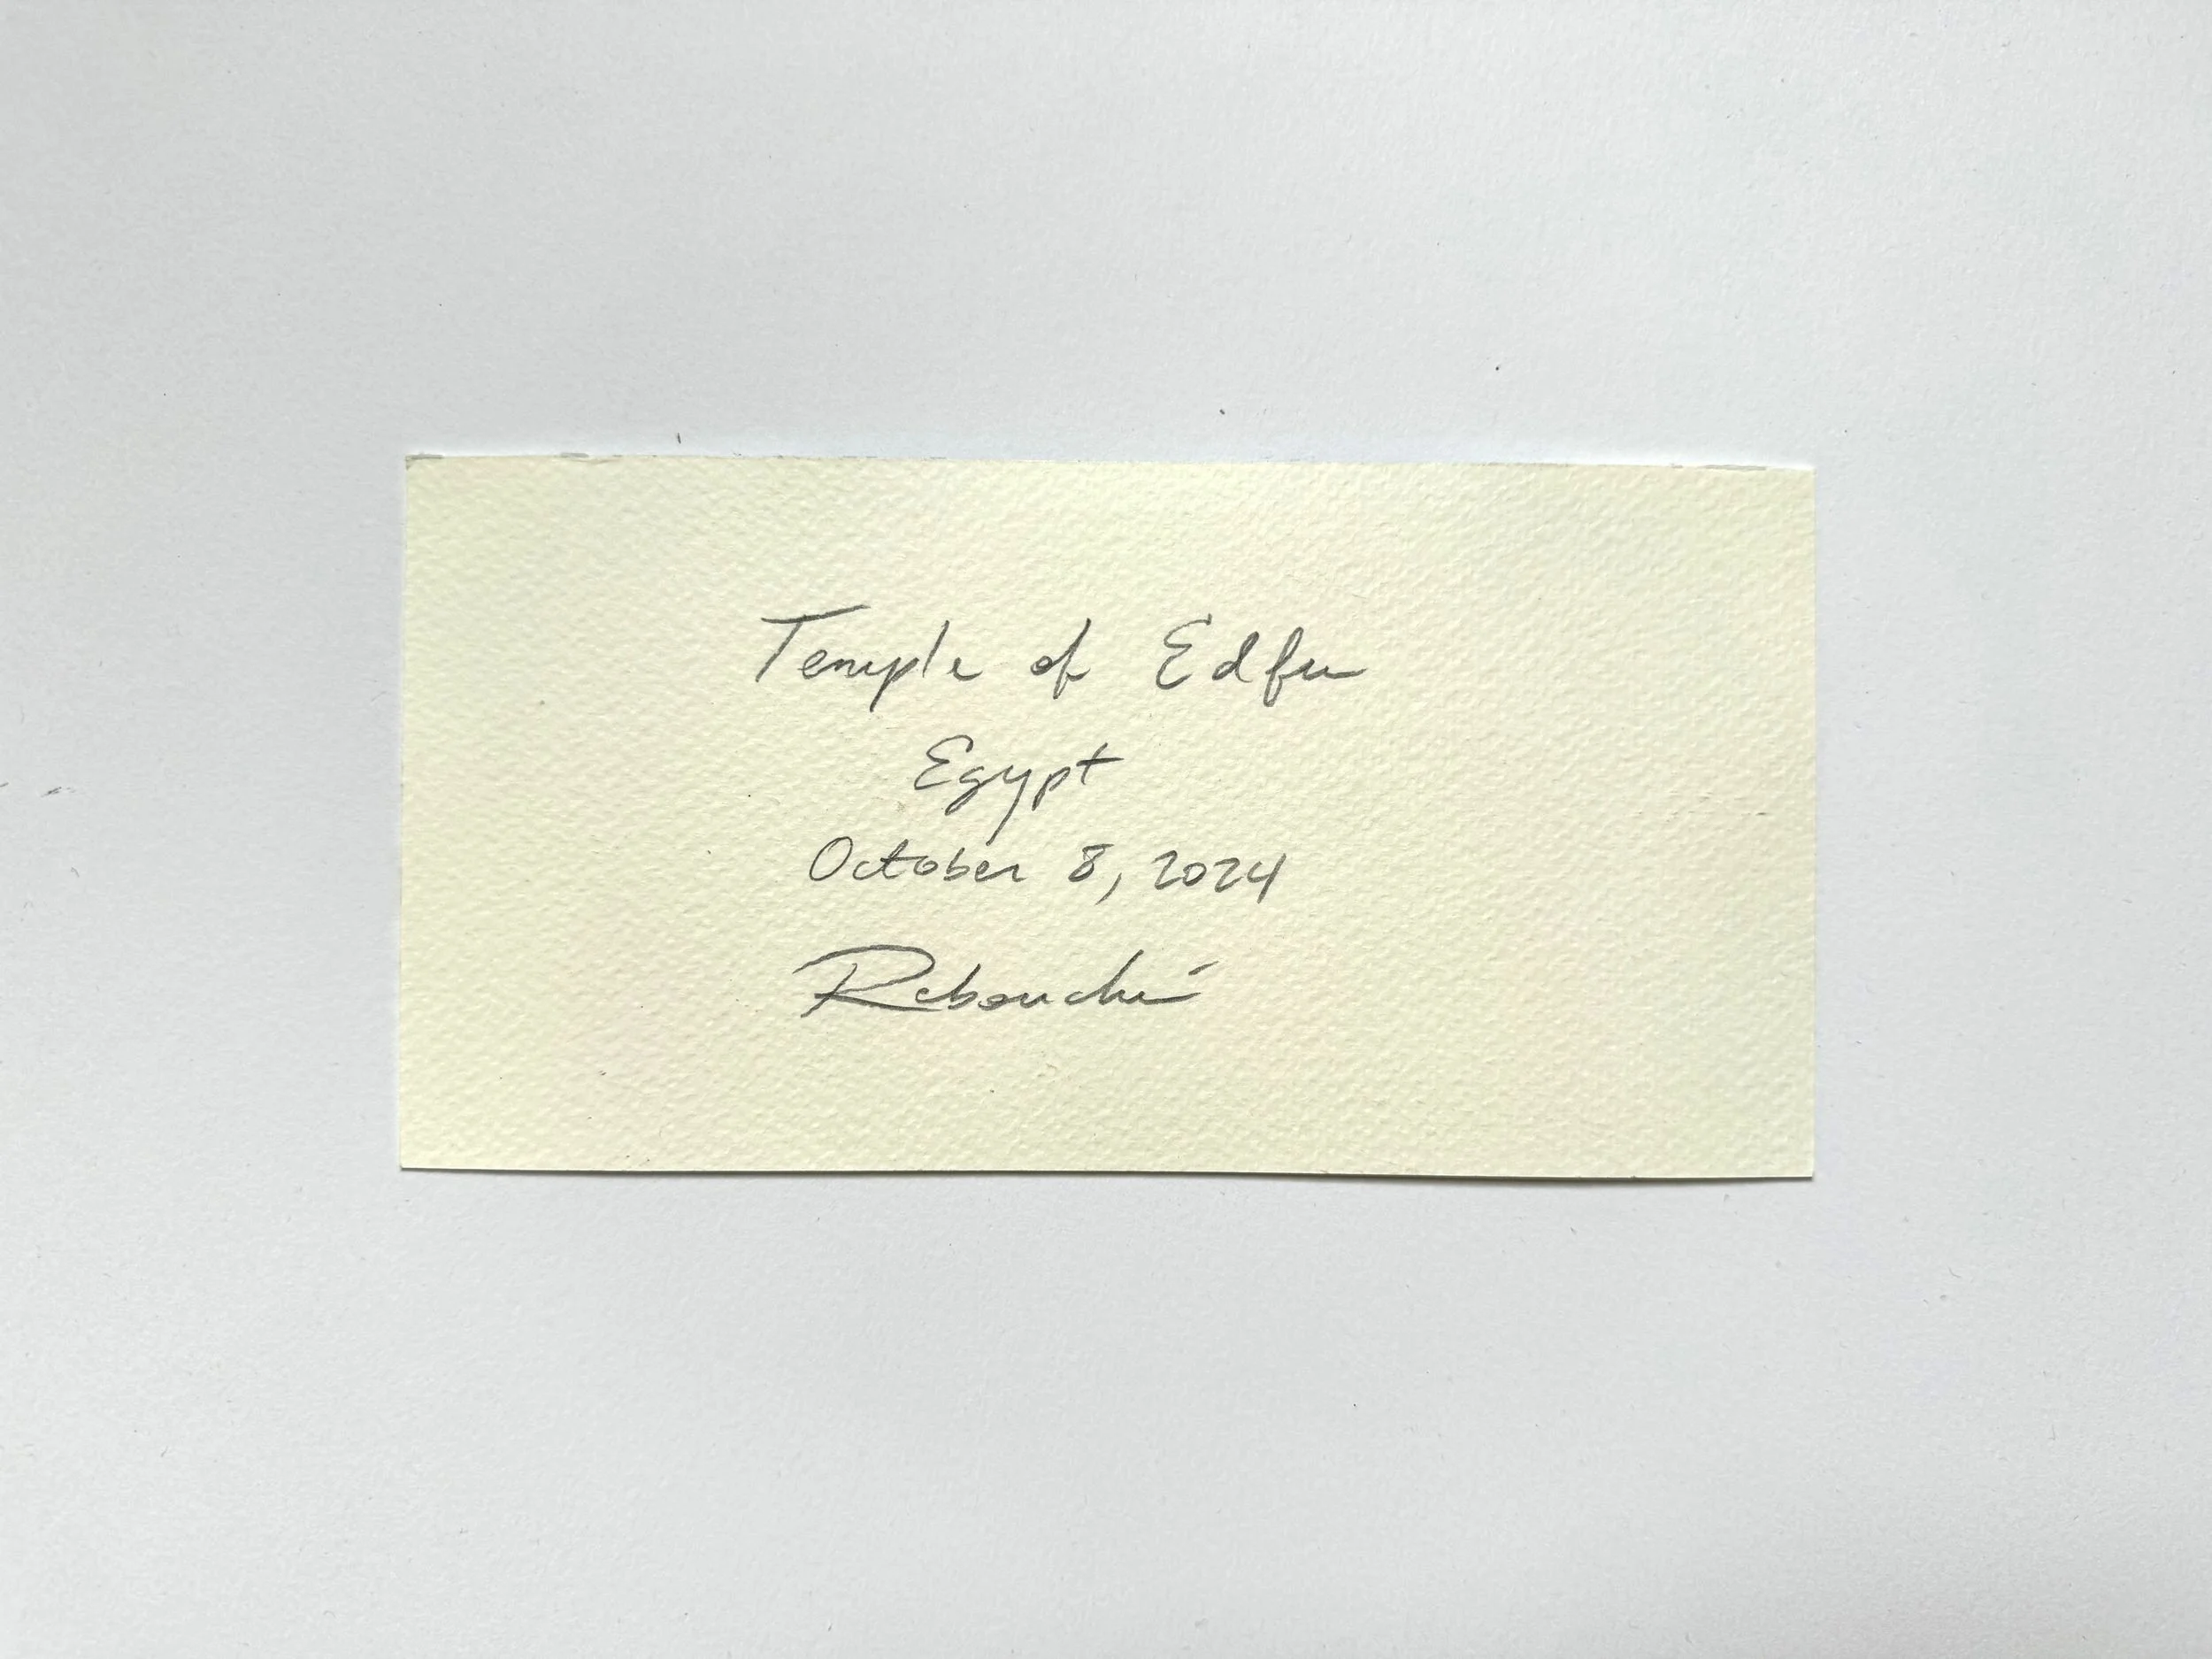 Temple of Edfu
Egypt
October 8, 2024
Rebouché